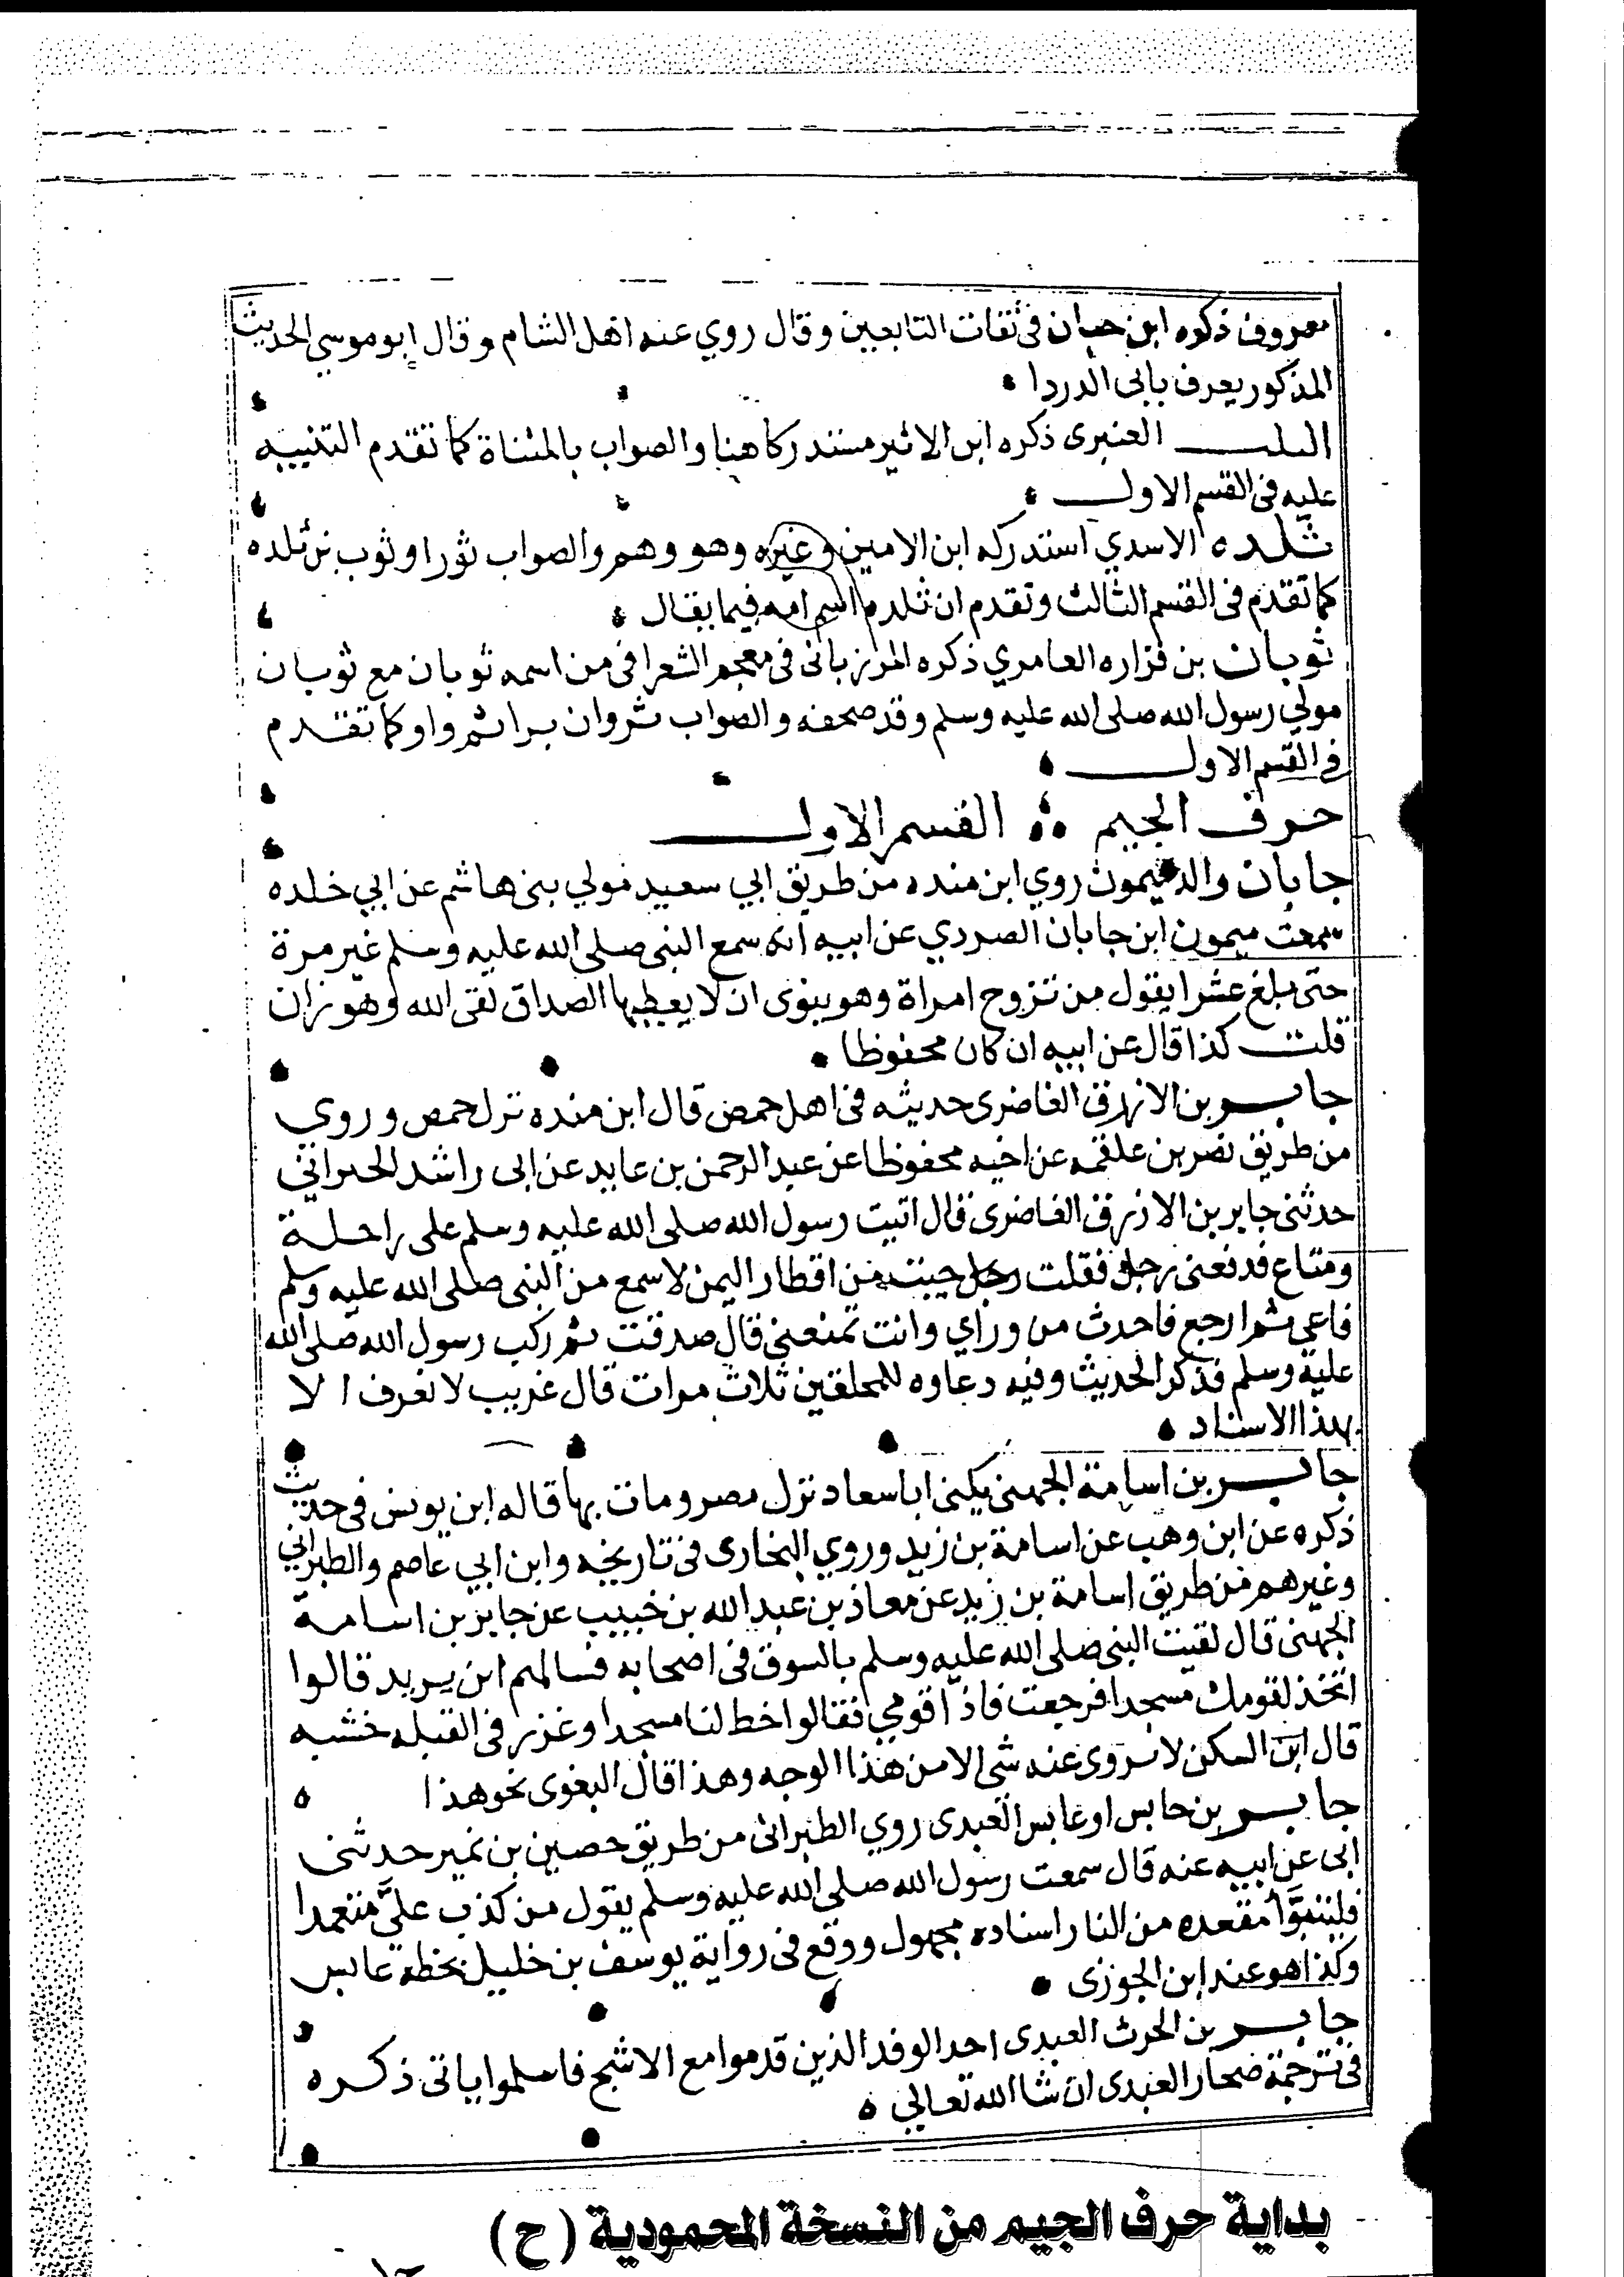 معروف ذكره ابن حبان فى ثقات التابعين وقال روي عنه اهل الشام وقال ابو موسي الحديث
المذكور يعرف بابى الدردا
الثلب العنبرى ذكره ابن الاثير مستدركا هنا والصواب بالمثناة كما تقدم التنبيه
عليه فى القسم الاول
ثلده الاسدي استدركه ابن الامين وغيره وهو وهم والصواب ثور او ثوب بن ثلده
كما تقدم فى القسم الثالث وتقدم ان ثلدم اسم امه فيما يقال
ثوبان بن فزاره العامري ذكره المرزبانى فى معجم الشعرا فى من اسمه ثوبان مع ثوبان
مولي رسول الله صلى الله عليه وسلم وقد صحفه والصواب ثروان برا ثم واو كما تقدم
فى القسم الاول
حرف الجيم القسم الاول
جابان والد ميمون روي ابن منده من طريق ابي سعيد مولي بنى هاشم عن ابي خلده
سمعت ميمون ابن جابان الصردي عن ابيه انه سمع النبى صلى الله عليه وسلم غير مرة
حتى بلغ عشرا يقول من تزوج امراة وهو ينوى ان لا يعطيها الصداق لقى الله وهو زان
قلت كذا قال عن ابيه ان كان محفوظا
جابر بن الازرق الغاضرى حديثه فى اهل حمص قال ابن منده نزل حمص وروي
من طريق نصر بن علقمه عن اخيه محفوظا عن عبد الرحمن بن عايد عن ابى راشد الحبرانى
حدثنى جابر بن الازرق الغاضرى قال اتيت رسول الله صلى الله عليه وسلم على راحلة
ومتاع فدفعنى رجل فقلت رجل جيت من اقطار اليمن لاسمع من النبى صلى الله عليه وسلم
فاعى ثم ارجع فاحدث من وراي وانت تمنعنى قال صدقت ثم ركب رسول الله صلى الله
علية وسلم فذكر الحديث وفيه دعاوه للمحلقين ثلاث مرات قال غريب لا نعرف الا
بهذا الاسناد
جابر بن اسامة الجهنى يكنى ابا سعاد نزل مصر ومات بها قاله ابن يونس فى حديث
ذكره عن ابن وهب عن اسامة بن زيد وروي البخارى فى تاريخه وابن ابي عاصم والطبرانى
وغيرهم من طريق اسامة بن زيد عن معاذ بن عبد الله بن خبيب عن جابر بن اسامة
الجهنى قال لقيت النبى صلى الله عليه وسلم بالسوق فى اصحابه فسالهم اين يريد قالوا
اتخذ لقومك مسجدا فرجعت فاذا قومي فقالوا خط لنا مسجدا وغرز فى القبله خشبه
قال ابن السكن لا يروى عنه شى الا من هذا الوجه وهذا قال البغوى نحو هذا
جابر بن حابس او عابس العبدى روي الطبرانى من طريق حصين بن نمير حدثنى
ابى عن ابيه عنه قال سمعت رسول الله صلى الله عليه وسلم يقول من كذب علىَّ متعمدا
فليتبوَّأ مقعده من النار اسناده مجهول ووقع فى رواية يوسف بن خليل بخطه عابس
وكذا هو عند ابن الجوزى
جابر بن الحرث العبدى احد الوفد الذين قدموا مع الاشج فاسلموا ياتى ذكره
فى ترجمة صحار العبدى ان شا الله تعالي
بداية حرف الجيم من النسخة المحمودية (ح)